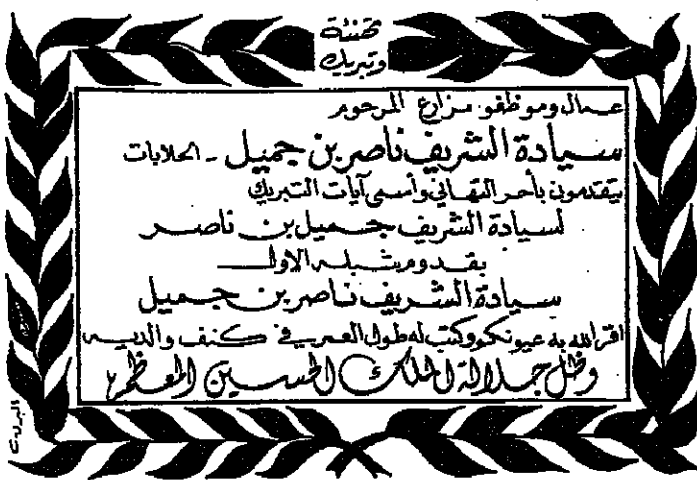 تهنئة
وتبريك
عمال وموظفو مزارع المرحوم
سيادة الشريف ناصر بن جميل - الحلابات
يتقدمون بأحر التهاني وأسمى آيات التبريك
لسيادة الشريف جميل بن ناصر
بقدوم شبله الاول
سيادة الشريف ناصر بن جميل
اقر الله به عيونكم وكتب له طول العمر في كنف والديه
وظل جلالة الملك الحسين المعظم